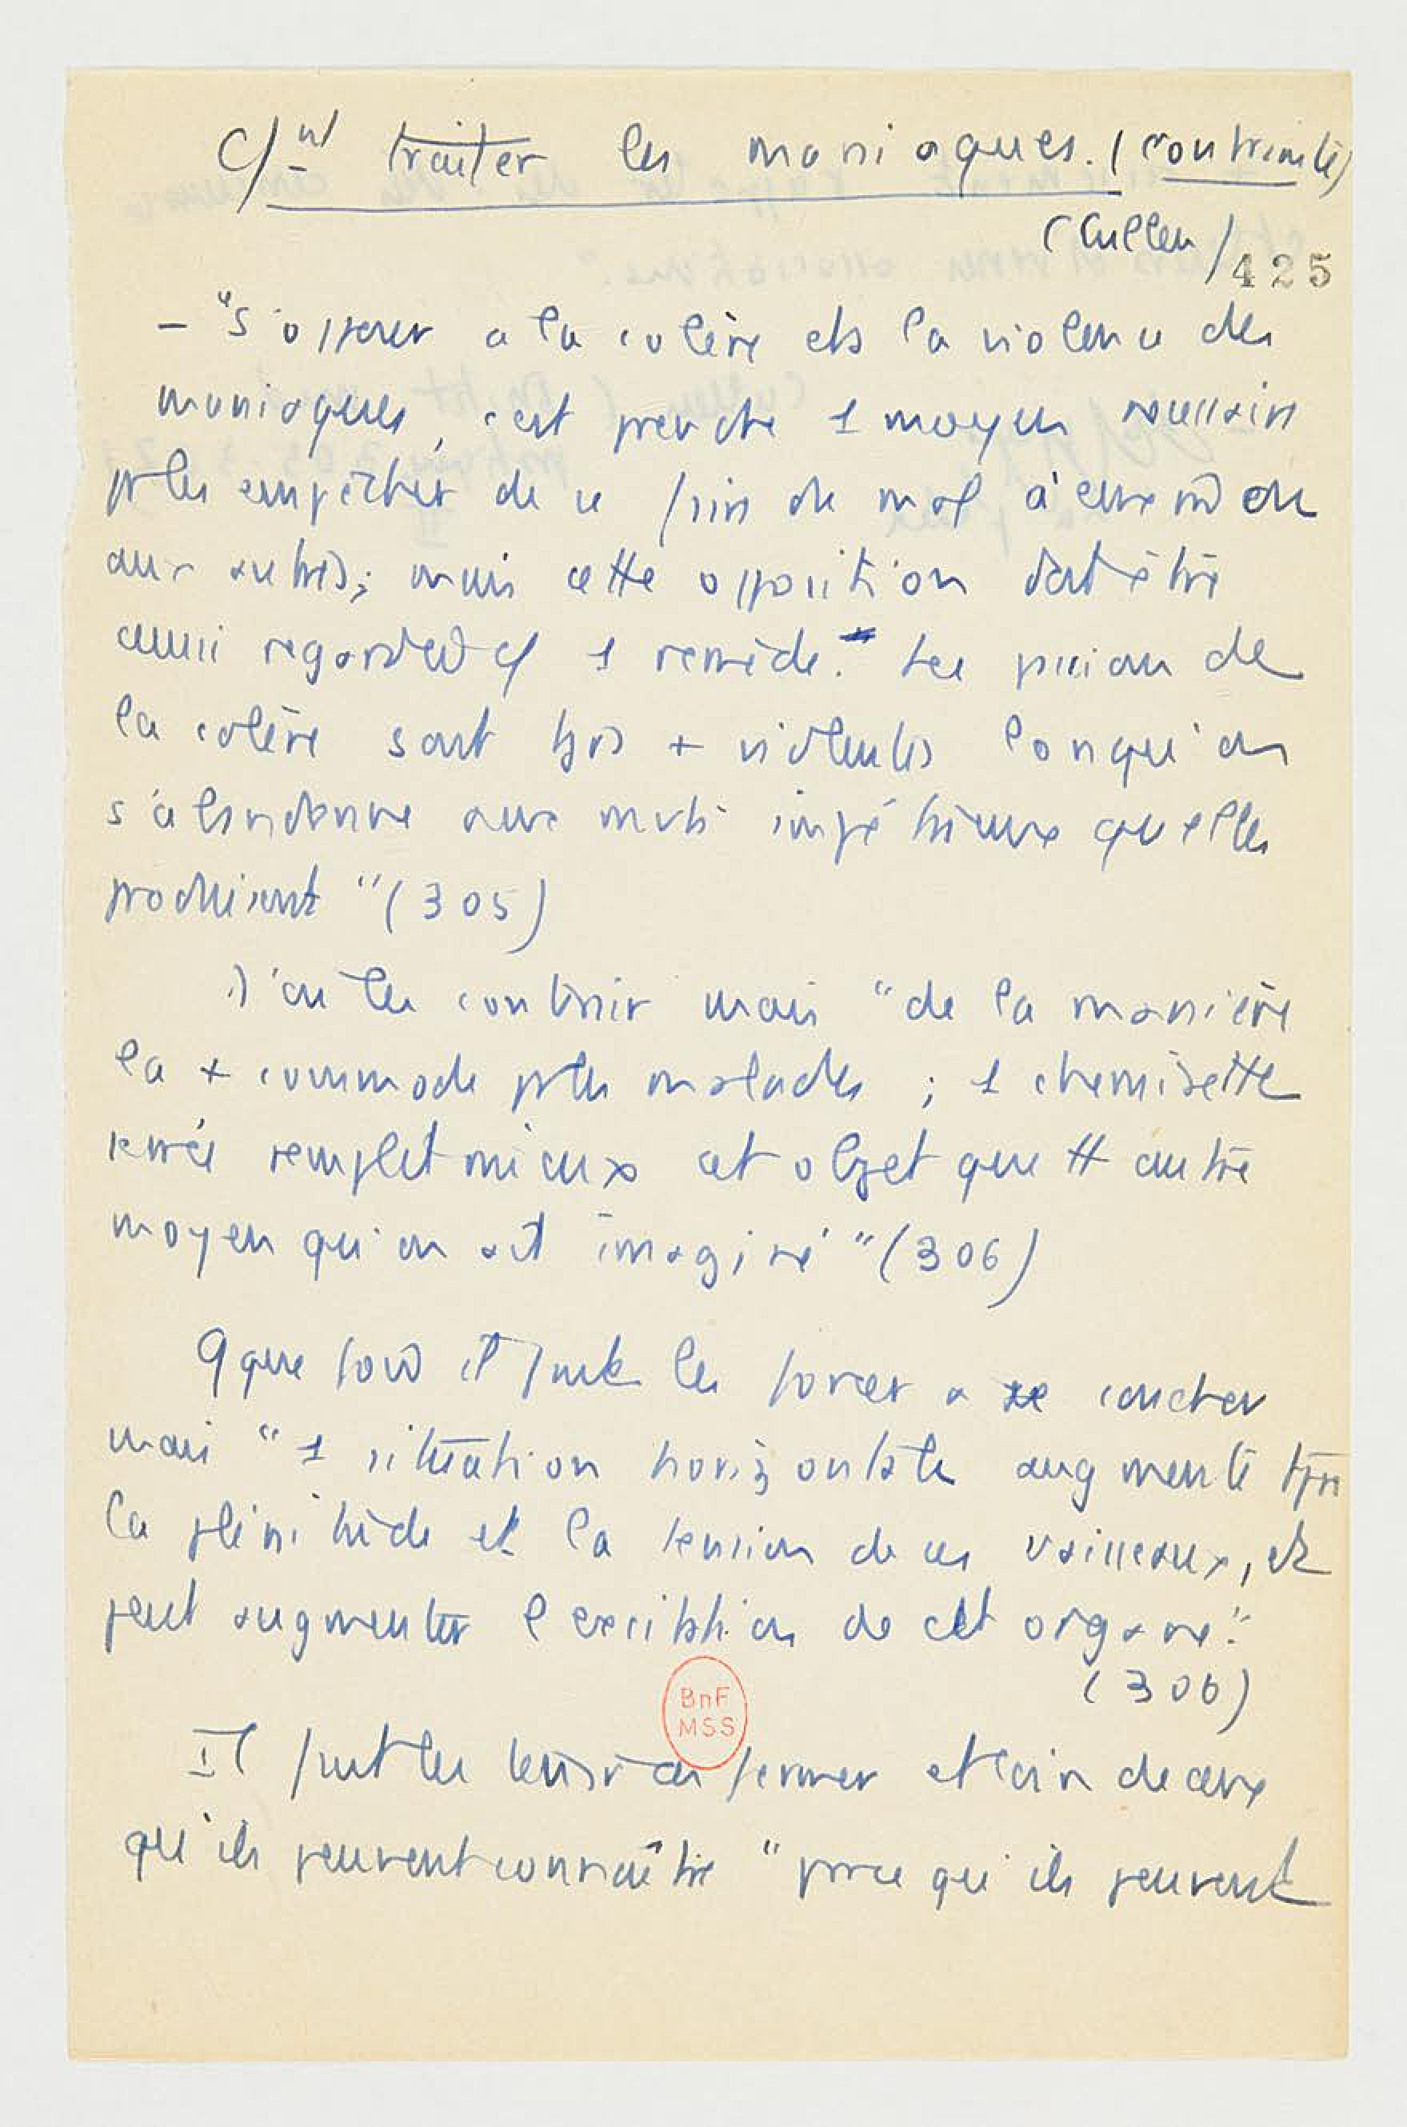 C/nt traiter les maniaques. (contrainte)
(Cullen)
425
– "S'opposer a la colère et à la violence des
maniaques, c'est prendre 1 moyen nécessaire
pr les empêcher de se faire du mal à eux m̂ ou
aux autres; mais cette opposition doit être
aussi regardée c/ 1 remède. Les passions de
la colère sont tjrs + violentes lorsqu'on
s'abandonne aux mvts impétueux qu'elles
produisent" (305)
les contenir mais "de la manière
la + commode pr les malades ; 1 chemisette
serrée remplit mieux cet objet que tt autre
moyen qu'on ait imaginé" (306)
Qque fois il faut les forcer a se coucher
mais "1 situation horizontale augmente tjrs
la plénitude et la tension de ces vaisseaux, et
peut augmenter l'excitation de cet organe."
(306)
BnF
MSS
Il faut les tenir enfermer et loin de ceux
qu'ils peuvent connaître "parce qu'ils peuvent